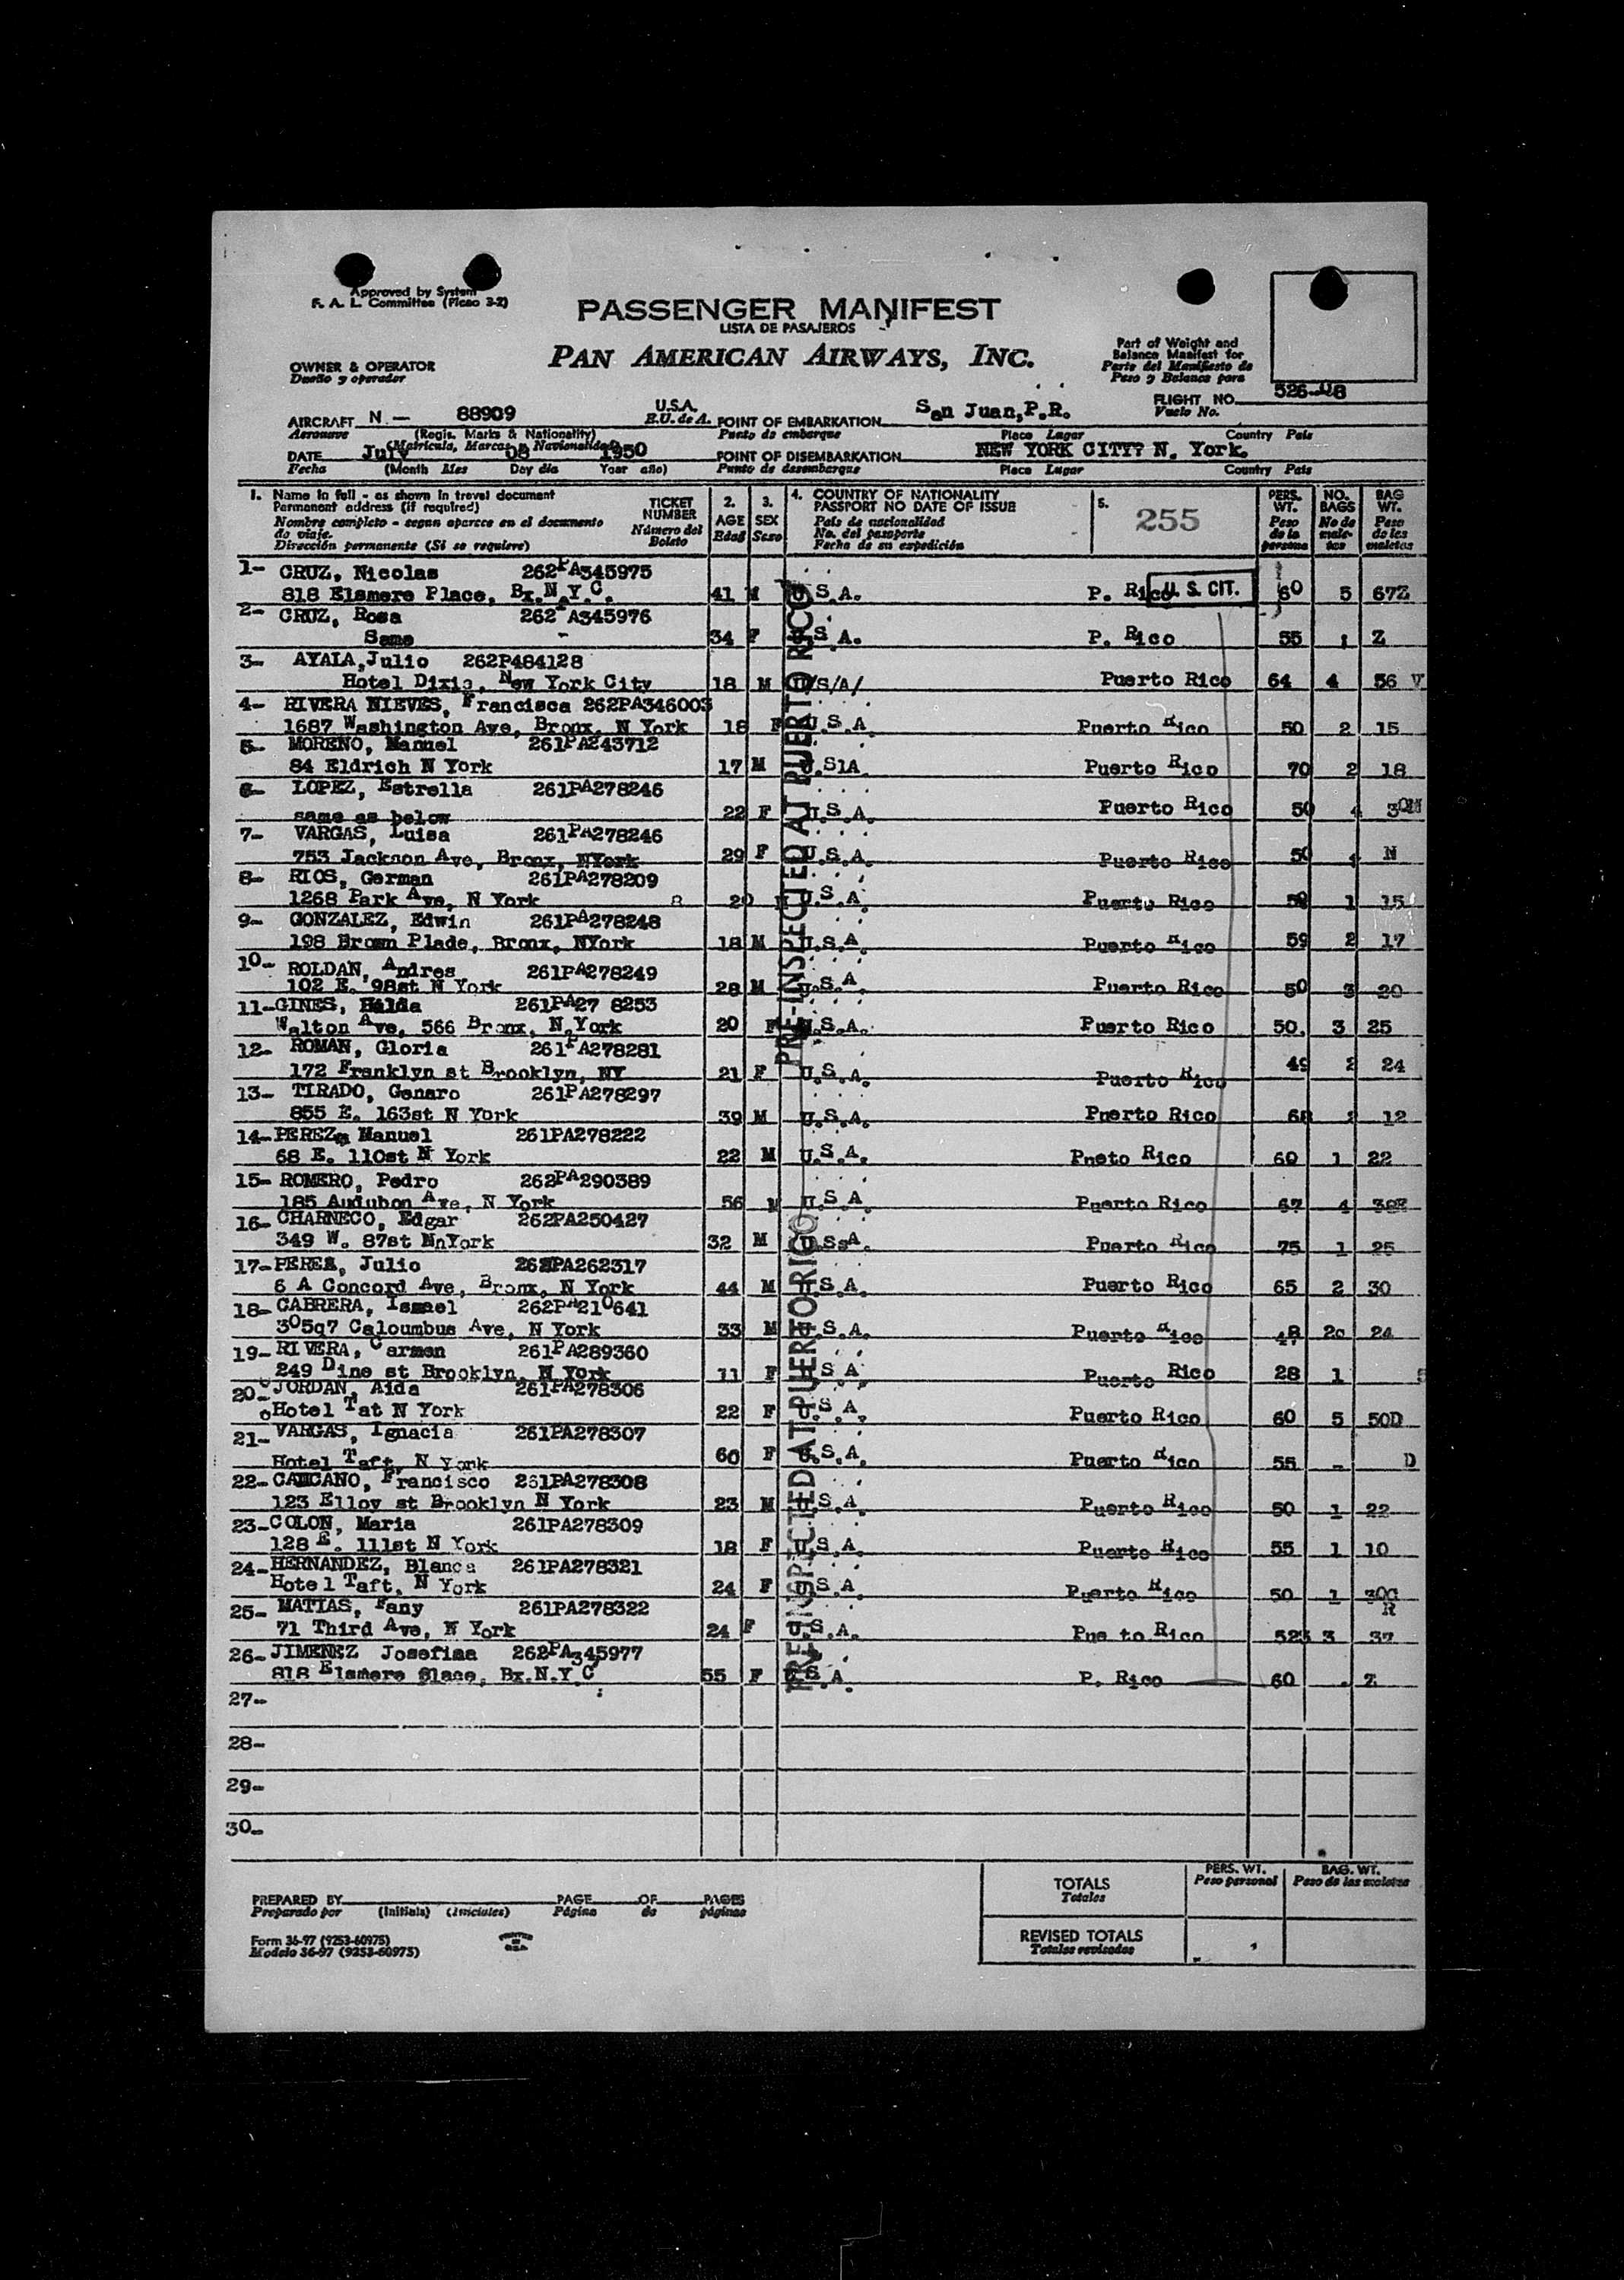 Approved by System
F. A. L. Committee (Ficao 3-2)
PASSENGER MANIFEST
LISTA DE PASAJEROS
PAN AMERICAN AIRWAYS, INC.
Part of Weight and
Balance Manifest for
Parte del Manifiesto de
Peso y Balance para
OWNER & OPERATOR
Dueño y operador
FLIGHT NO. 526-08
Vuelo No.
AIRCRAFT N - 88909 U.S.A. POINT OF EMBARKATION San Juan,P.R.
Aeronave (Regis. Marks & Nationality) E.U. de A. Punto de embarque Place Lugar Country Pais
(Matricula, Marcas y Nacionalidad)
DATE July 08 1950 POINT OF DISEMBARKATION NEW YORK CITY? N. York.
Fecha (Month Mes Day dia Year año) Punto de desembarque Place Lugar Country Pais
1. Name in full - as shown in travel document
Permanent address (if required)
Nombre completo - segun aparece en el documento
de viaje.
Dirección permanente (Si se requiere)
TICKET
NUMBER
Número del
Boleto
2.
AGE
Edad
3.
SEX
Sexo
4. COUNTRY OF NATIONALITY
PASSPORT NO DATE OF ISSUE
Pais de nacionalidad
No. del pasaporte
Fecha de su expedición
5.
255
PERS.
WT.
Peso
de la
persona
NO.
BAGS
No de
male-
tas
BAG
WT.
Peso
de les
maletas
1- CRUZ, Nicolas 262PA345975
818 Elsmere Place, Bx.N.Y.C. 41 M U.S.A. P. Rico U. S. CIT. 60 5 67Z
2- CRUZ, Rosa 262PA345976
Same - 34 F U.S A. P. Rico 55 Z
3- AYALA,Julio 262P484128
Hotel Dixie, New York City 18 M U/S/A/ Puerto Rico 64 4 56 V
4- RIVERA NIEVES, Francisca 262PA346003
1687 Washington Ave, Bronx, N York 18 F U.S.A. Puerto Rico 50 2 15
5- MORENO, Manuel 261PA243712
84 Eldrich N York 17 M U.S1A Puerto Rico 70 2 18
6- LOPEZ, Estrella 261PA278246
same as below 22 F U.S.A. Puerto Rico 50 4 30N
7- VARGAS, Luisa 261PA278246
753 Jackson Ave, Bronx, NYork 29 F U.S.A. Puerto Rico 50 N
8- RIOS, German 261PA278209
1268 Park Ave, N York 20 U.S.A. Puerto Rico 1 15
9- GONZALEZ, Edwin 261PA278248
198 Brown Plade, Bronx, NYork 18 M U.S.A Puerto Rico 59 2 17
10- ROLDAN, Andres 261PA278249
102 E. 98st N York 28 M U.S.A Puerto Rico 50 3 20
11-GINES, Hilda 261PA27 8253
Walton Ave. 566 Bronx, N.York 20 F U.S.A. Puerto Rico 50. 3 25
12- ROMAN, Gloria 261PA278281
172 Franklyn st Brooklyn, NY 21 F U.S.A. Puerto Rico 49 2 24
13- TIRADO, Genaro 261PA278297
855 E. 163st N York 39 M U.S.A. Puerto Rico 68 12
14-PEREZ, Manuel 261PA278222
68 E. 110st N York 22 M U.S.A. Pueto Rico 60 1 22
15- ROMERO, Pedro 262PA290389
185 Audubon Ave, N York 56 M U.S A Puerto Rico 67 4
16- CHARNECO, Edgar 262PA250427
349 W. 87st NnYork 32 M U.SsA. Puerto Rico 75 1 25
17-PEREZ, Julio 262PA262317
6 A Concord Ave, Bronx, N York 44 M U.S.A. Puerto Rico 65 2 30
18- CABRERA, Ismael 262PA210641
305q7 Caloumbus Ave, N York 33 M U.S.A. Puerto Rico 48 2c 24
19-RIVERA, Carmen 261PA289360
249 Dine st Brooklyn, N York 11 F U S A Puerto Rico 28 1 5
20- JORDAN, Aida 261PA278306
Hotel Tat N York 22 F U.S.A. Puerto Rico 60 5 50D
21- VARGAS, Ignacia 261PA278307
Hotel Taft, N York 60 F U.S.A. Puerto Rico 55 - D
22- CANCANO, Francisco 261PA278308
123 Elloy st Brooklyn N York 23 M U.S.A. Puerto Rico 50 1 22
23-COLON, Maria 261PA278309
128 E. 111st N York 18 F U.S.A. Puerto Rico 55 1 10
24-HERNANDEZ, Blanca 261PA278321
Hotel Taft, N York 24 F U.S.A Puerto Rico 50 1 30G
R
25- MATIAS, Fany 261PA278322
71 Third Ave, N York 24 F U.S.A. Pue to Rico 523 3 37
26-JIMENEZ Josefina 262PA345977
818 Elsmere Slace, Bx.N.Y C 55 F U.S.A. P. Rico 60 Z
27-
28-
29-
30-
PRE-INSPECTED AT PUERTO RICO
PRE-INSPECTED AT PUERTO RICO
PERS. WT. BAG. WT.
Peso personal Peso de las maletas
TOTALS
Totales
REVISED TOTALS
Totales revisados
PREPARED BY PAGE OF PAGES
Preparado por (Initials) (Iniciales) Página de páginas
Form 36-97 (9253-60975)
Modelo 36-97 (9253-60975)
PRINTED
IN
U.S.A.